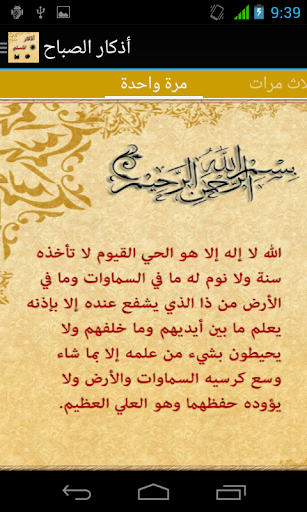 9:39
أذكار الصباح
مرة واحدة
ث مرات
بسم الله الرحمن الرحيم
الله لا إله إلا هو الحي القيوم لا تأخذه
سنة ولا نوم له ما في السماوات وما في
الأرض من ذا الذي يشفع عنده إلا بإذنه
يعلم ما بين أيديهم وما خلفهم ولا
يحيطون بشيء من علمه إلا بما شاء
وسع كرسيه السماوات والأرض ولا
يؤوده حفظهما وهو العلي العظيم.